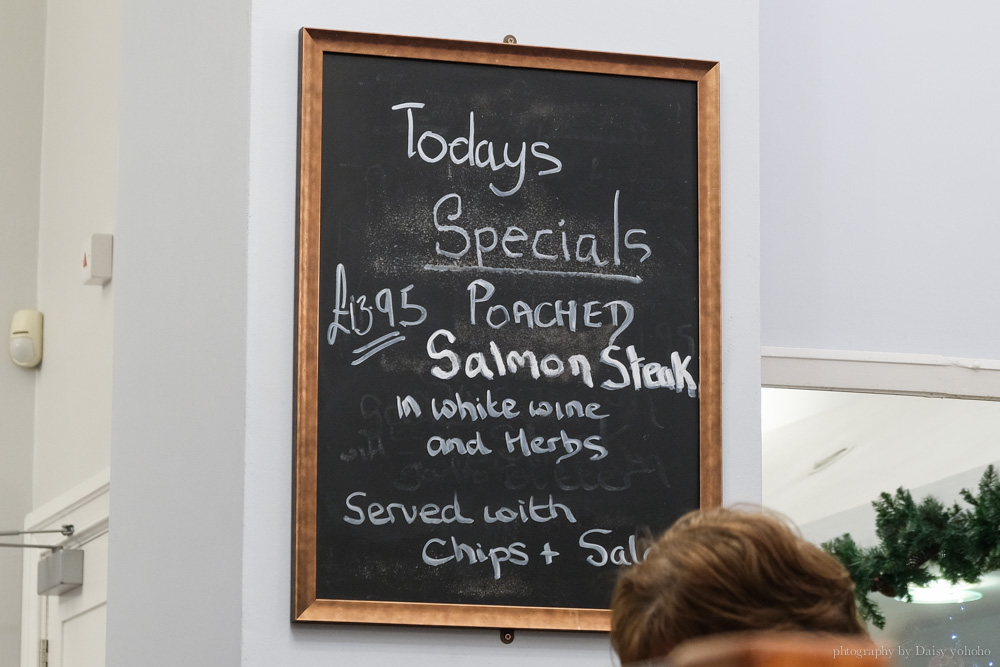 Todays
Specials
£13.95 POACHED
Salmon Steak
in white wine
and Herbs
Served with
Chips + Sala
photography by Daisy yohoho